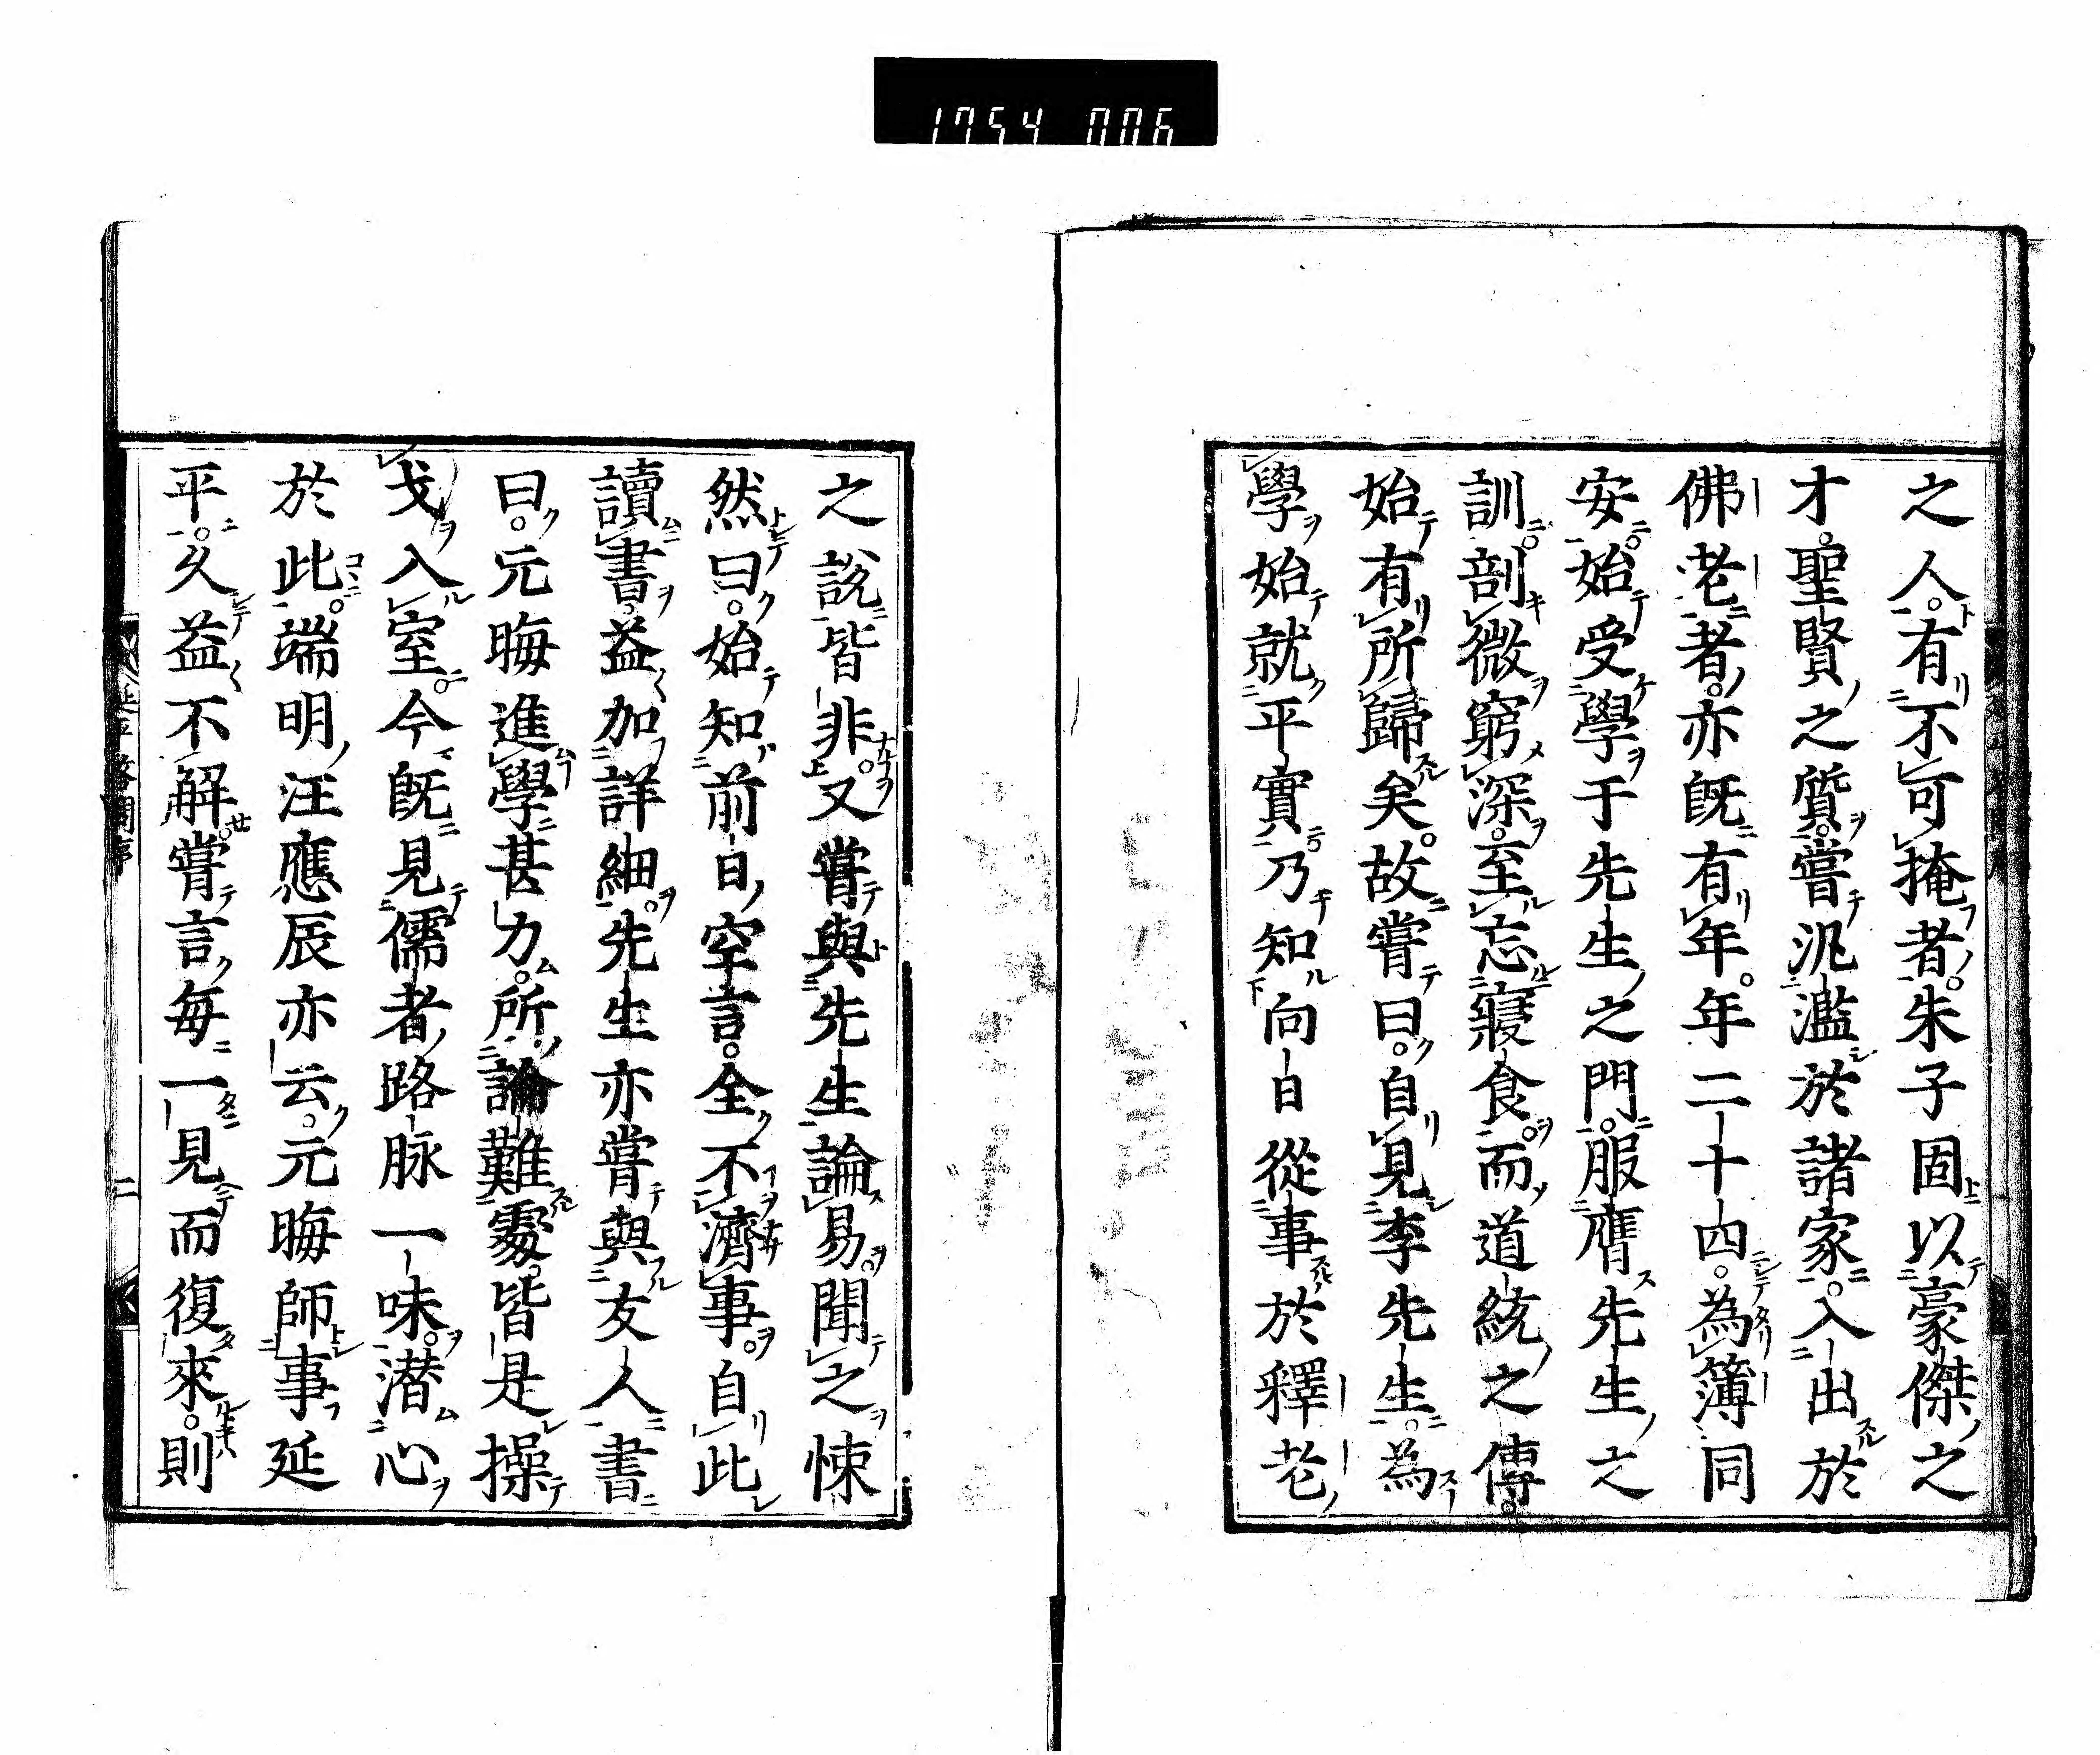 1754 006
之人有不可掩者朱子固以豪傑之
才聖賢之質嘗汎濫於諸家入出於
佛老者亦既有年年二十四為簿同
安始受學于先生之門服膺先生之
訓剖微窮深至忘寢食而道統之傳
始有所歸矣故嘗曰自見李先生為
學始就平實乃知向日從事於釋老
之說皆非又嘗與先生論易聞之悚
然曰始知前日空言全不濟事自此
讀書益加詳細先生亦嘗與友人書
曰元晦進學甚力所論難處皆是操
戈入室今既見儒者路脉一味潜心
於此端明汪應辰亦云元晦師事延
平久益不懈嘗言每一見而復來則
延平答問序
二